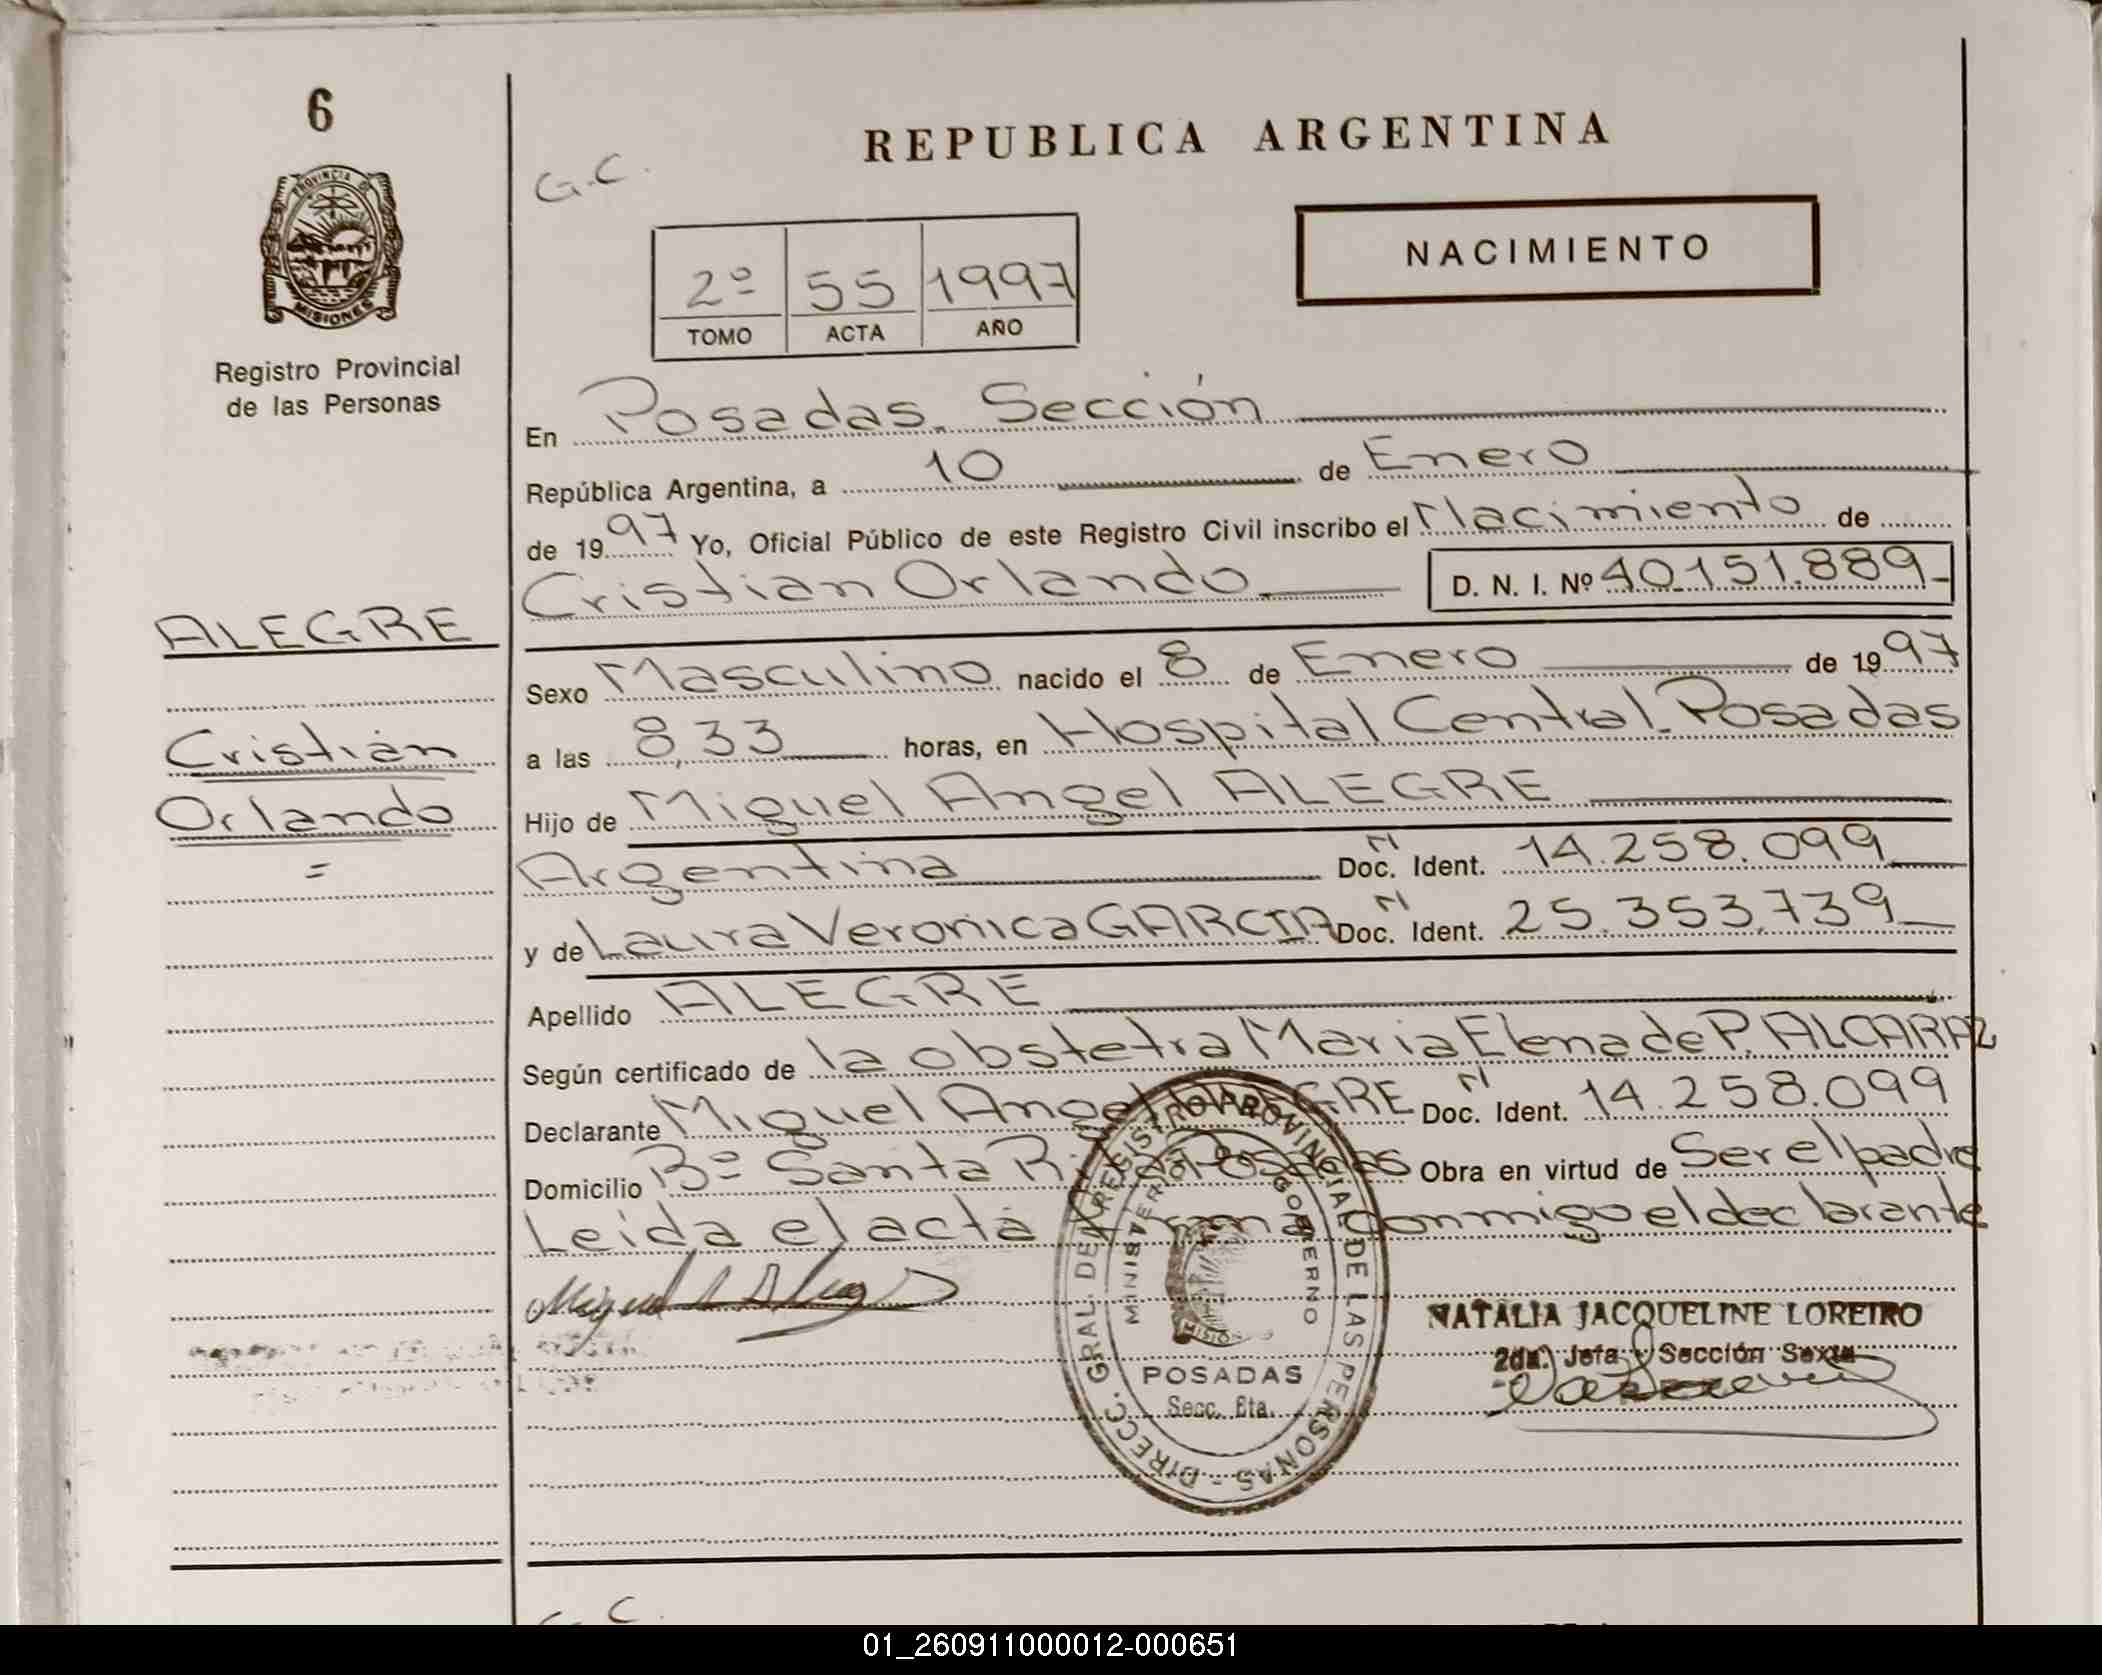 6
REPUBLICA ARGENTINA
G.C.
NACIMIENTO
PROVINCIA DE
MISIONES
2º 55 1997
TOMO ACTA AÑO
Registro Provincial
de las Personas
En Posadas. Sección
República Argentina, a 10 de Enero
de 1997 Yo, Oficial Público de este Registro Civil inscribo el Nacimiento de
Cristian Orlando D. N. I. Nº 40.151.889-
ALEGRE
Sexo Masculino nacido el 8 de Enero de 1997
Cristian
a las 8,33 horas, en Hospital Central. Posadas
Orlando
=
Hijo de Miguel Angel ALEGRE
Argentina N Doc. Ident. 14.258.099
y de Laura Veronica GARCIA N Doc. Ident. 25.353.739
Apellido ALEGRE
Según certificado de la obstetra Maria Elena de P. ALCARAZ
Declarante Miguel Angel ALEGRE N Doc. Ident. 14.258.099
Domicilio Bº Santa Rita Posadas Obra en virtud de Ser el padre
Leida el acta firma Conmigo el declarante
Miguel A Alegre
DIRECC. GRAL. DEL REGISTRO PROVINCIAL DE LAS PERSONAS -
MINISTERIO DE GOBIERNO
MISIONES
POSADAS
Secc. 6ta.
NATALIA JACQUELINE LOREIRO
2da. Jefa Sección Sexta
G. C.
01_260911000012-000651